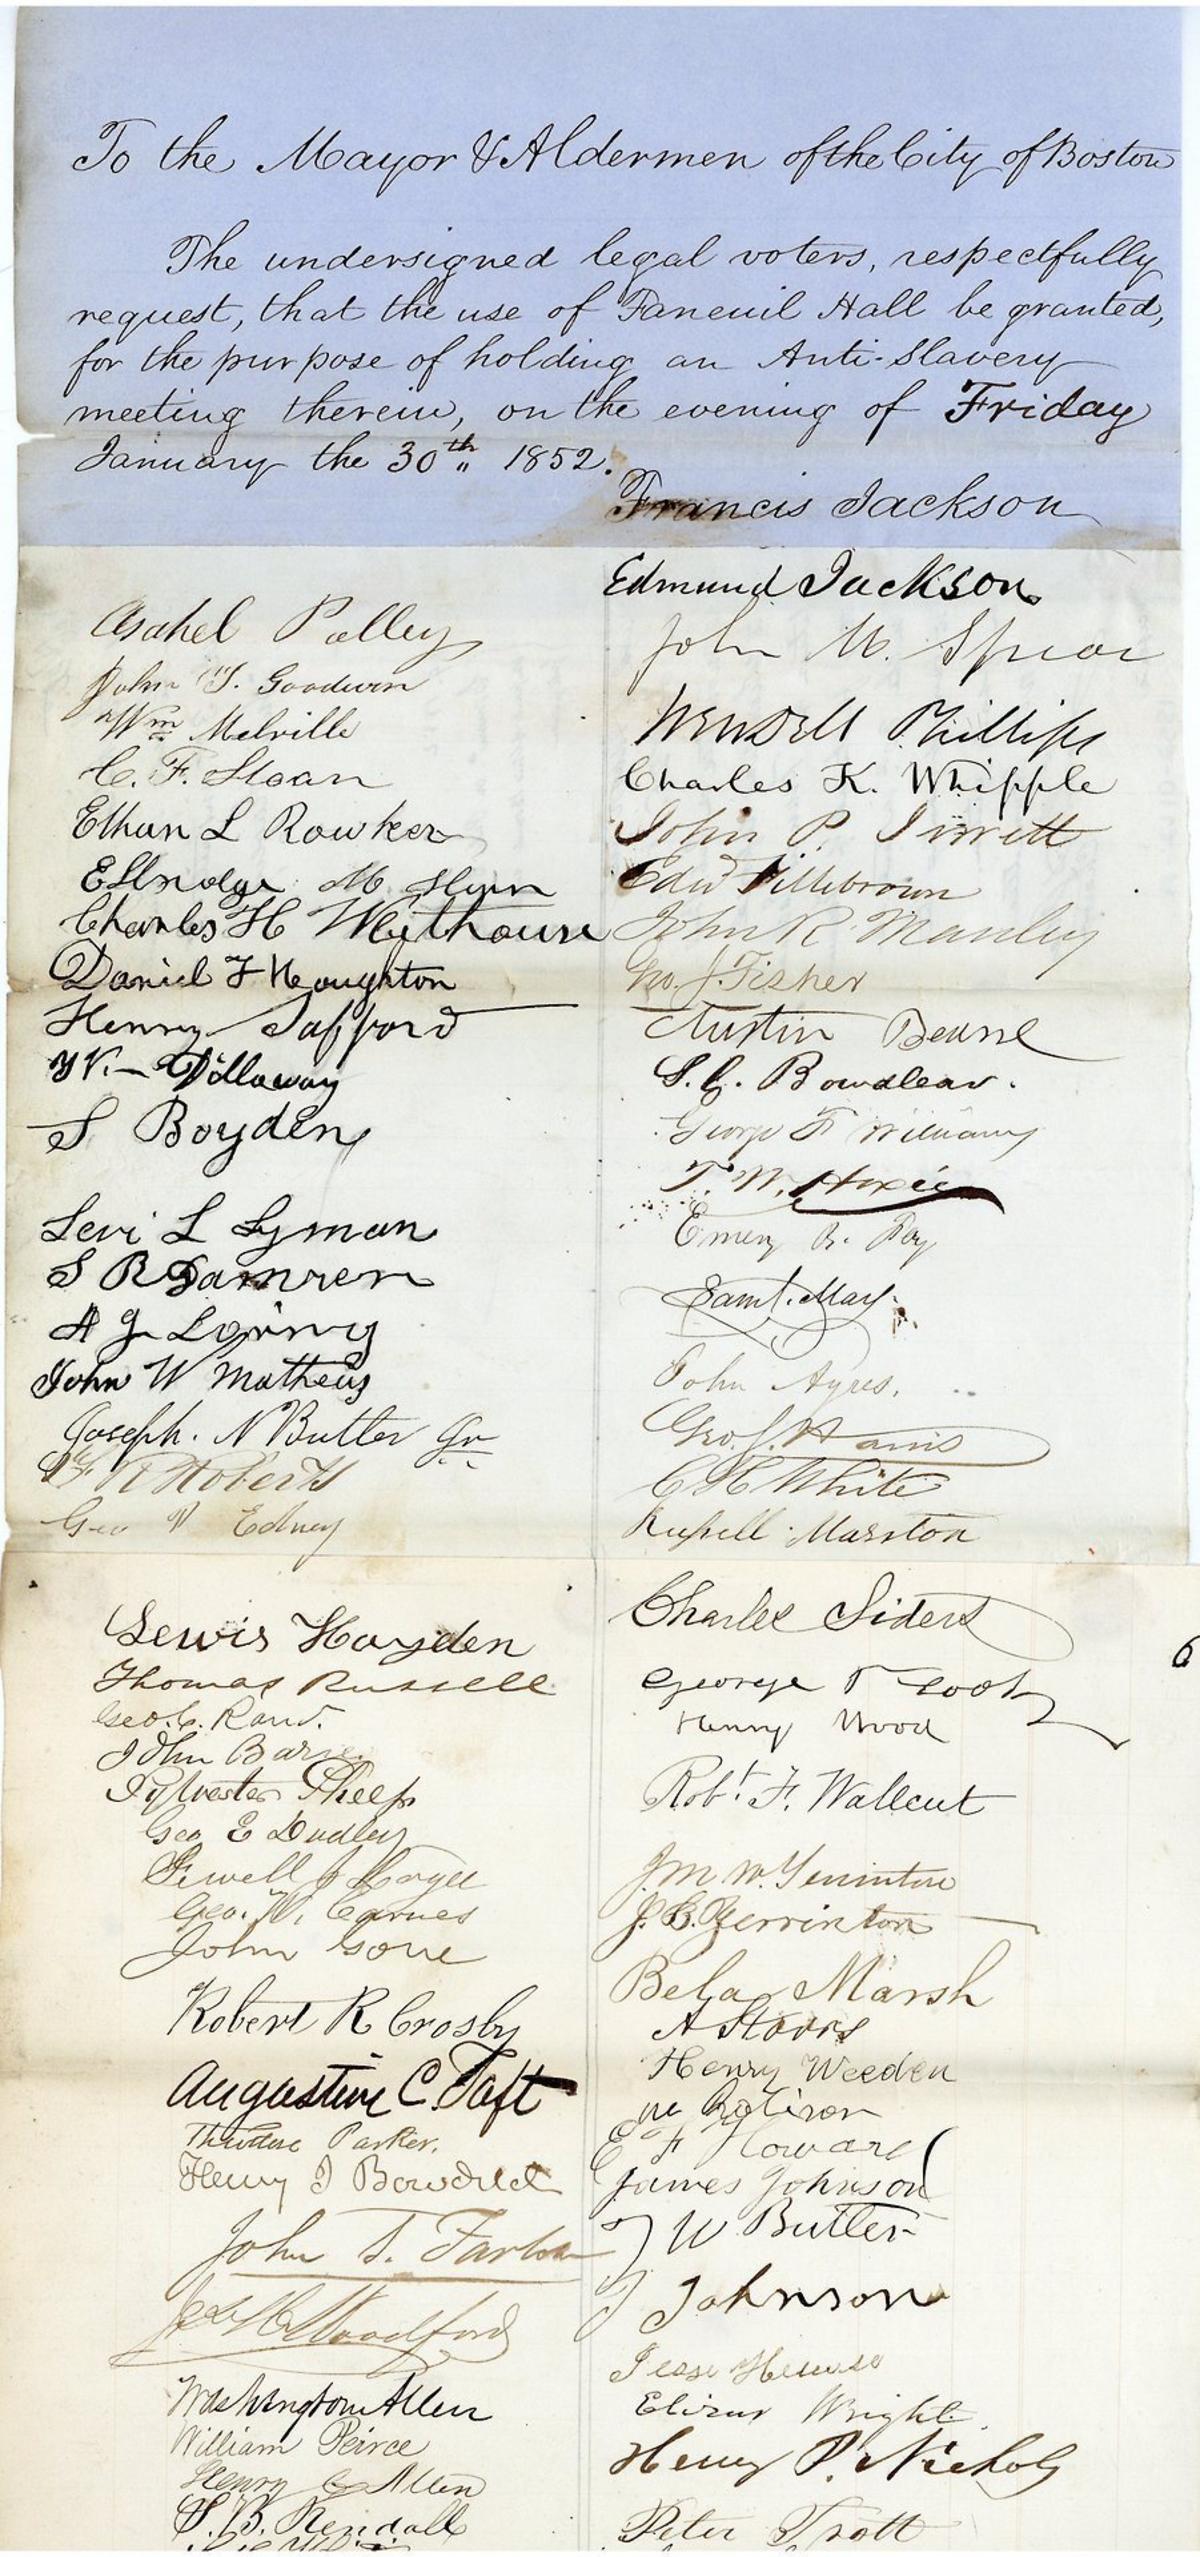 To the Mayor & Aldermen of the City of Boston
The undersigned legal voters, respectfully
request, that the use of Faneuil Hall be granted,
for the purpose of holding an Anti-Slavery
meeting therein, on the evening of Friday
January the 30th 1852.
Francis Jackson
Edmund Jackson
John M. Spear
Wendell Phillips
Charles K. Whipple
John P. Jewett
Edwd Fillebrown
John R Manley
Geo. J. Fisher
Austin Bearse
S. C. Bowdlear.
George F Williams
T. W. Hoxie
Emery B. Fay
Saml. May.
John Ayres.
Geo. J. Harris
C H White
Russell Marston
Asahel Polley
John T. Goodwin
Wm Melville
C. F. Sloan
Ethan L Rowker
M
Charles H
Daniel F Houghton
Henry Safford
W. Dillaway
S Boyden
Levi L Lyman
S R Damren
A J Loring
John W Mathews
Joseph. N Butler Jr
Roberts
Geo Edney
Charles Siders
George T Cook
Henry Wood
Robt. F. Wallcut
J. M. W. Yerrinton
J. B. Yerrinton
Bela Marsh
A Stows
Henry Weeden
E F Howard
James Johnson
J W Butler
J Johnson
Jesse
Elizur Wright.
Henry P. Nichols
Peter Trott
Lewis Hayden
Thomas Russell
Geo. C. Rand.
John
Sylvester Phelps
Geo E Dudley
Sewell J
Geo. W. Carnes
John Gove
Robert R Crosby
Augustine C. Taft
Theodore Parker.
Henry I Bowditch
John T.
Woodford
Washington Allen
William Peirce
Henry C Allen
S. B. Kendall